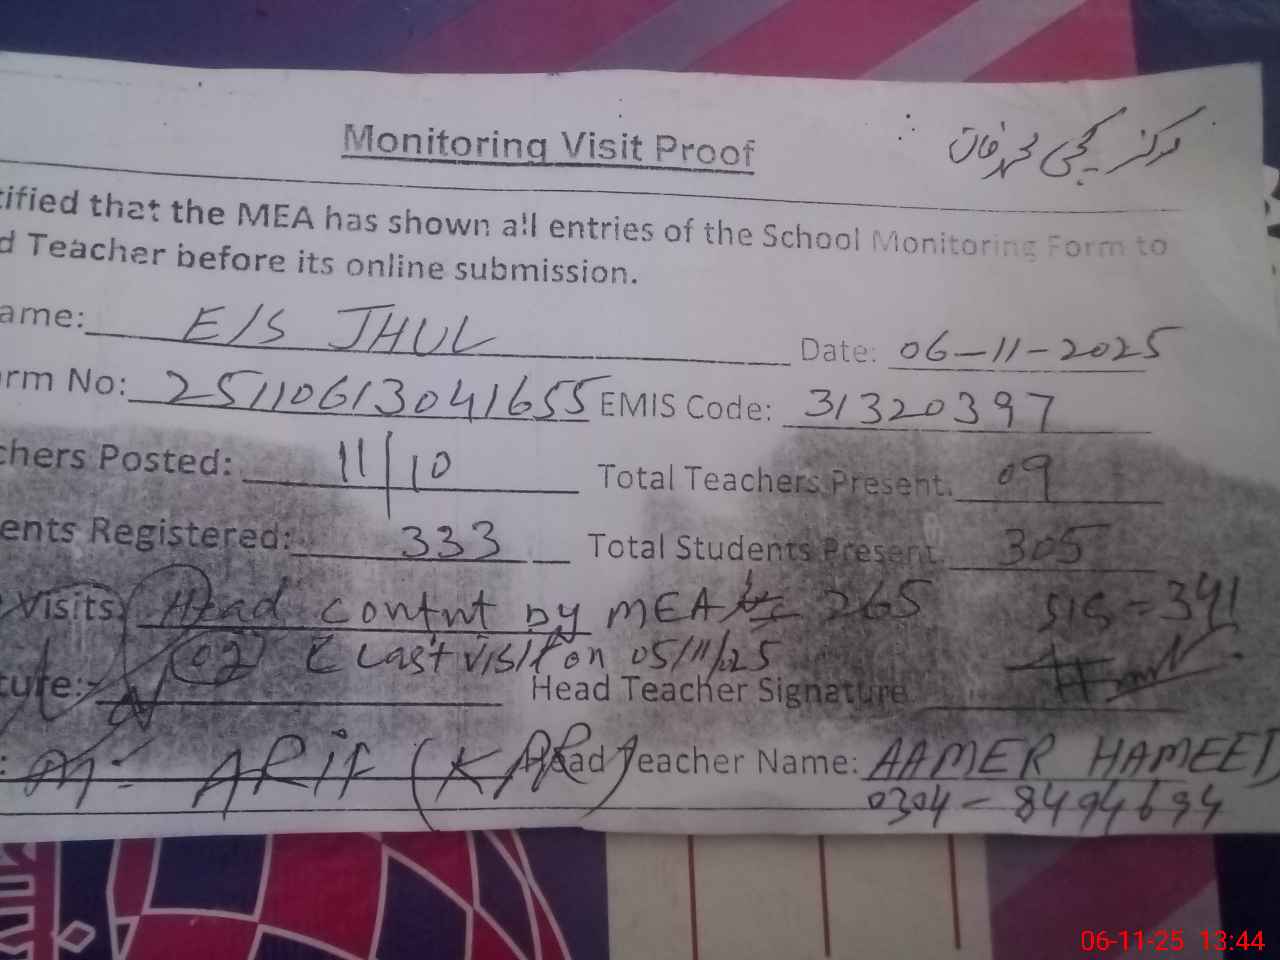 Monitoring Visit Proof
مرکز یحیٰی محمد فاروق
tified that the MEA has shown all entries of the School Monitoring Form to
d Teacher before its online submission.
ame: E/S JHUL Date: 06-11-2025
rm No: 25110613041655 EMIS Code: 31320397
chers Posted: 11/10 Total Teachers Present. 09
ents Registered: 333 Total Students Present 305
Visits Head contnt by MEA 265 SIS = 341
02 Last visit on 05/11/25
ture: Head Teacher Signature
: M. ARIF (KPR) Head Teacher Name: AAMER HAMEED
0304-8494694
06-11-25 13:44